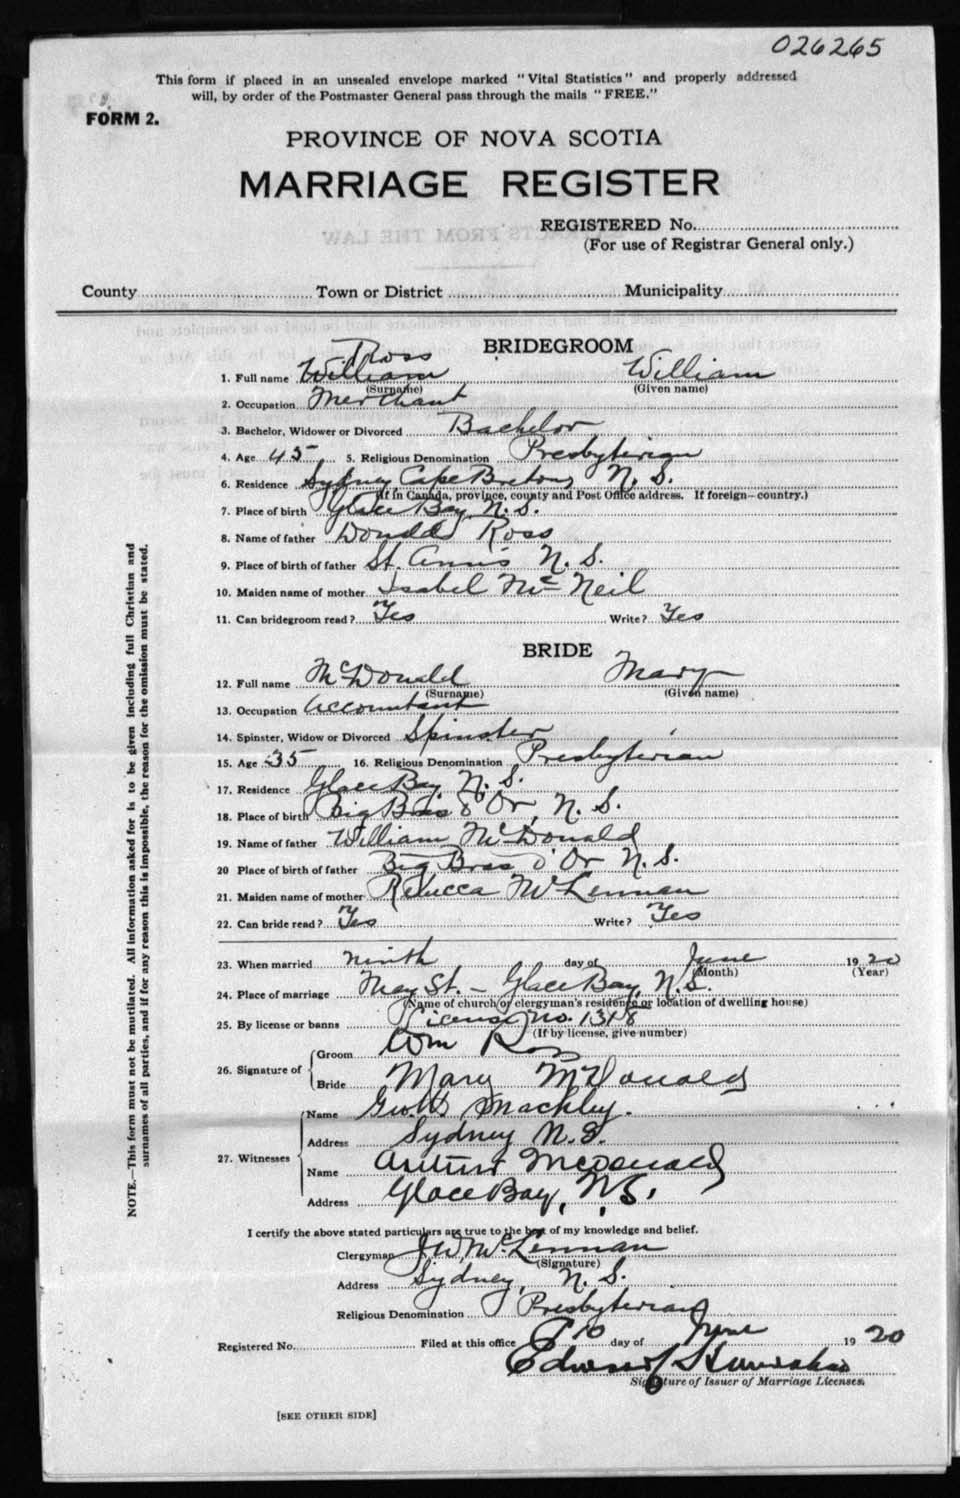 026265
This form if placed in an unsealed envelope marked "Vital Statistics" and properly addressed
will, by order of the Postmaster General pass through the mails "FREE."
FORM 2.
PROVINCE OF NOVA SCOTIA
MARRIAGE REGISTER
REGISTERED No.
(For use of Registrar General only.)
County Town or District Municipality
BRIDEGROOM
Ross
1. Full name William William
(Surname) (Given name)
2. Occupation Merchant
3. Bachelor, Widower or Divorced Bachelor
4. Age 45 5. Religious Denomination Presbyterian
6. Residence Sydney, Cape Breton, N. S.
(If in Canada, province, county and Post Office address. If foreign—country.)
7. Place of birth Glace Bay, N. S.
8. Name of father Donald Ross
9. Place of birth of father St. Ann's N. S.
10. Maiden name of mother Isabel McNeil
11. Can bridegroom read? Yes Write? Yes
BRIDE
12. Full name McDonald Mary
(Surname) (Given name)
13. Occupation Accountant
14. Spinster, Widow or Divorced Spinster
15. Age 35 16. Religious Denomination Presbyterian
17. Residence Glace Bay, N. S.
18. Place of birth Big Bras d'Or, N. S.
19. Name of father William McDonald
20 Place of birth of father Big Bras d'Or N. S.
21. Maiden name of mother Rebecca McLennan
22. Can bride read? Yes Write? Yes
23. When married ninth day of June 1920
(Month) (Year)
24. Place of marriage May St. - Glace Bay, N. S.
(Name of church or clergyman's residence or location of dwelling house)
25. By license or banns License No. 1318
(If by license, give number)
26. Signature of Groom Wm Ross
Bride Mary McDonald
27. Witnesses Name Mackley.
Address Sydney N. S.
Name Arthur McDonald
Address Glace Bay, N. S.
I certify the above stated particulars are true to the best of my knowledge and belief.
Clergyman J. W. McLennan
(Signature)
Address Sydney, N. S.
Religious Denomination Presbyterian
Registered No. Filed at this office 10 day of June 1920
Edward
Signature of Issuer of Marriage Licenses.
[SEE OTHER SIDE]
NOTE.—This form must not be mutilated. All information asked for is to be given including full Christian and
surnames of all parties, and if for any reason this is impossible, the reason for the omission must be stated.